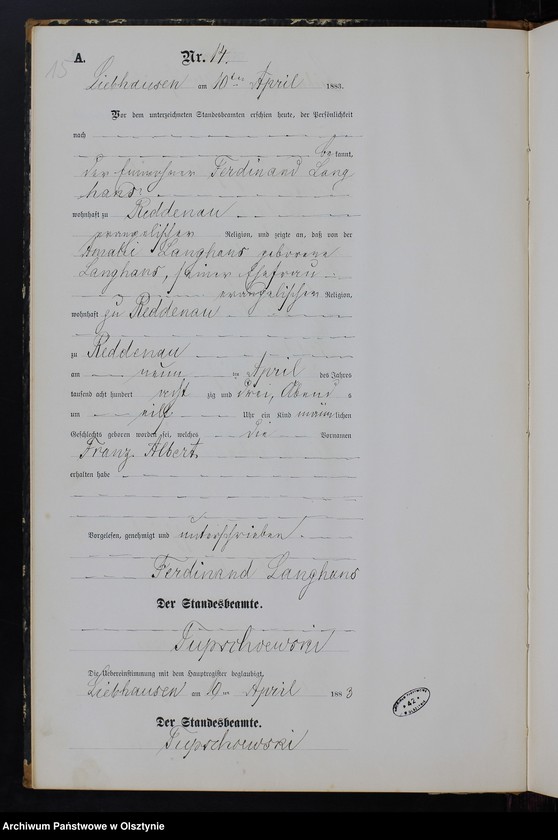 15
A. Nr. 14.
Liebhausen am 10ten April 1883.
Vor dem unterzeichneten Standesbeamten erschien heute, der Persönlichkeit
nach
bekannt,
der Einwohner Ferdinand Lang
hans
wohnhaft zu Reddenau
evangelischer Religion, und zeigte an, daß von der
Langhans geborene
Langhans, seiner Ehefrau
evangelischer Religion,
wohnhaft zu Reddenau
zu Reddenau
am neun ten April des Jahres
tausend acht hundert acht zig und drei, Abends
um elf Uhr ein Kind männlichen
Geschlechts geboren worden sei, welches die Vornamen
Franz Albert
erhalten habe
Vorgelesen, genehmigt und unterschrieben
Ferdinand Langhans
Der Standesbeamte.
Tupschoewski
Die Uebereinstimmung mit dem Hauptregister beglaubigt.
Liebhausen am 10ten April 1883
Der Standesbeamte.
Tupschoewski
42
Archiwum Państwowe w Olsztynie